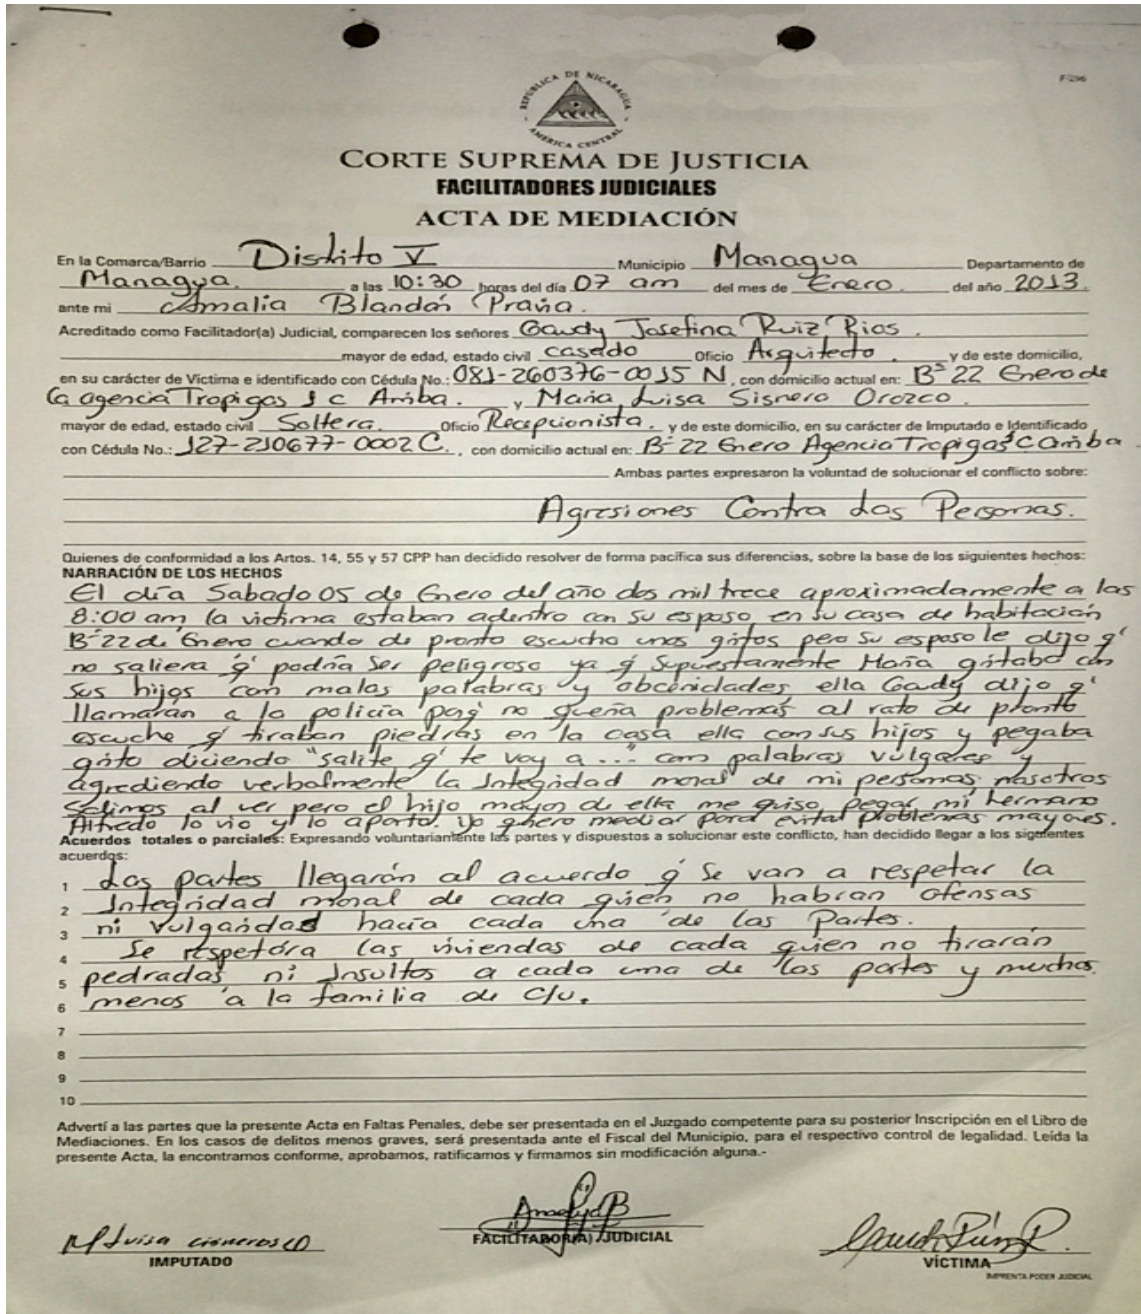 F-296
REPÚBLICA DE NICARAGUA
AMÉRICA CENTRAL
CORTE SUPREMA DE JUSTICIA
FACILITADORES JUDICIALES
ACTA DE MEDIACIÓN
En la Comarca/Barrio Distrito V Municipio Managua Departamento de
Managua. a las 10:30 horas del día 07 am del mes de Enero. del año 2013.
ante mi Amalia Blandón Praña.
Acreditado como Facilitador(a) Judicial, comparecen los señores Gaudy Josefina Ruiz Rios.
mayor de edad, estado civil casado Oficio Arquitecto. y de este domicilio,
en su carácter de Victima e identificado con Cédula No.: 081-260376-0015 N, con domicilio actual en: Bº 22 Enero de
la agencia Tropigas 1 c Arriba. y Maria Luisa Sisnero Orozco.
mayor de edad, estado civil Soltera. Oficio Recepcionista. y de este domicilio, en su carácter de Imputado e Identificado
con Cédula No.: 127-210677-0002 C., con domicilio actual en: Bº 22 Enero Agencia Tropigas 1 c Arriba.
Ambas partes expresaron la voluntad de solucionar el conflicto sobre:
Agresiones Contra las Personas.
Quienes de conformidad a los Artos. 14, 55 y 57 CPP han decidido resolver de forma pacífica sus diferencias, sobre la base de los siguientes hechos:
NARRACIÓN DE LOS HECHOS
El día Sabado 05 de Enero del año dos mil trece aproximadamente a las
8:00 am, la victima estaban adentro con su esposo en su casa de habitación
Bº 22 de Enero cuando de pronto escucho unos gritos pero su esposo le dijo q'
no saliera q' podría ser peligroso ya q' Supuestamente María gritaba con
sus hijos con malas palabras y obcenidades, ella Gaudy dijo q'
llamarán a la policía porq' no quería problemas al rato de pronto
escuche q' tiraban piedras en la casa ella con sus hijos y pegaba
grito diciendo "salite q' te voy a ... con palabras vulgares y
agrediendo verbalmente la Integridad moral de mi personas nosotros
Salimos al ver pero el hijo mayor de ella me quiso pegar mi hermano
Alfredo lo vio y lo aparto. Yo quiero mediar para evitar problemas mayores.
Acuerdos totales o parciales: Expresando voluntariamente las partes y dispuestos a solucionar este conflicto, han decidido llegar a los siguientes
acuerdos:
1 Las partes llegarón al acuerdo q' se van a respetar la
2 Integridad moral de cada quien no habran ofensas
3 ni vulgaridades hacia cada una de las Partes.
4 Se respetára las viviendas de cada quien no tirarán
5 pedradas ni Insultos a cada una de las partes y muchos
6 menos a la familia de c/u.
7
8
9
10
Advertí a las partes que la presente Acta en Faltas Penales, debe ser presentada en el Juzgado competente para su posterior Inscripción en el Libro de
Mediaciones. En los casos de delitos menos graves, será presentada ante el Fiscal del Municipio, para el respectivo control de legalidad. Leída la
presente Acta, la encontramos conforme, aprobamos, ratificamos y firmamos sin modificación alguna.-
M Luisa cisneros O
IMPUTADO
FACILITADOR(A) JUDICIAL
VÍCTIMA
IMPRENTA PODER JUDICIAL